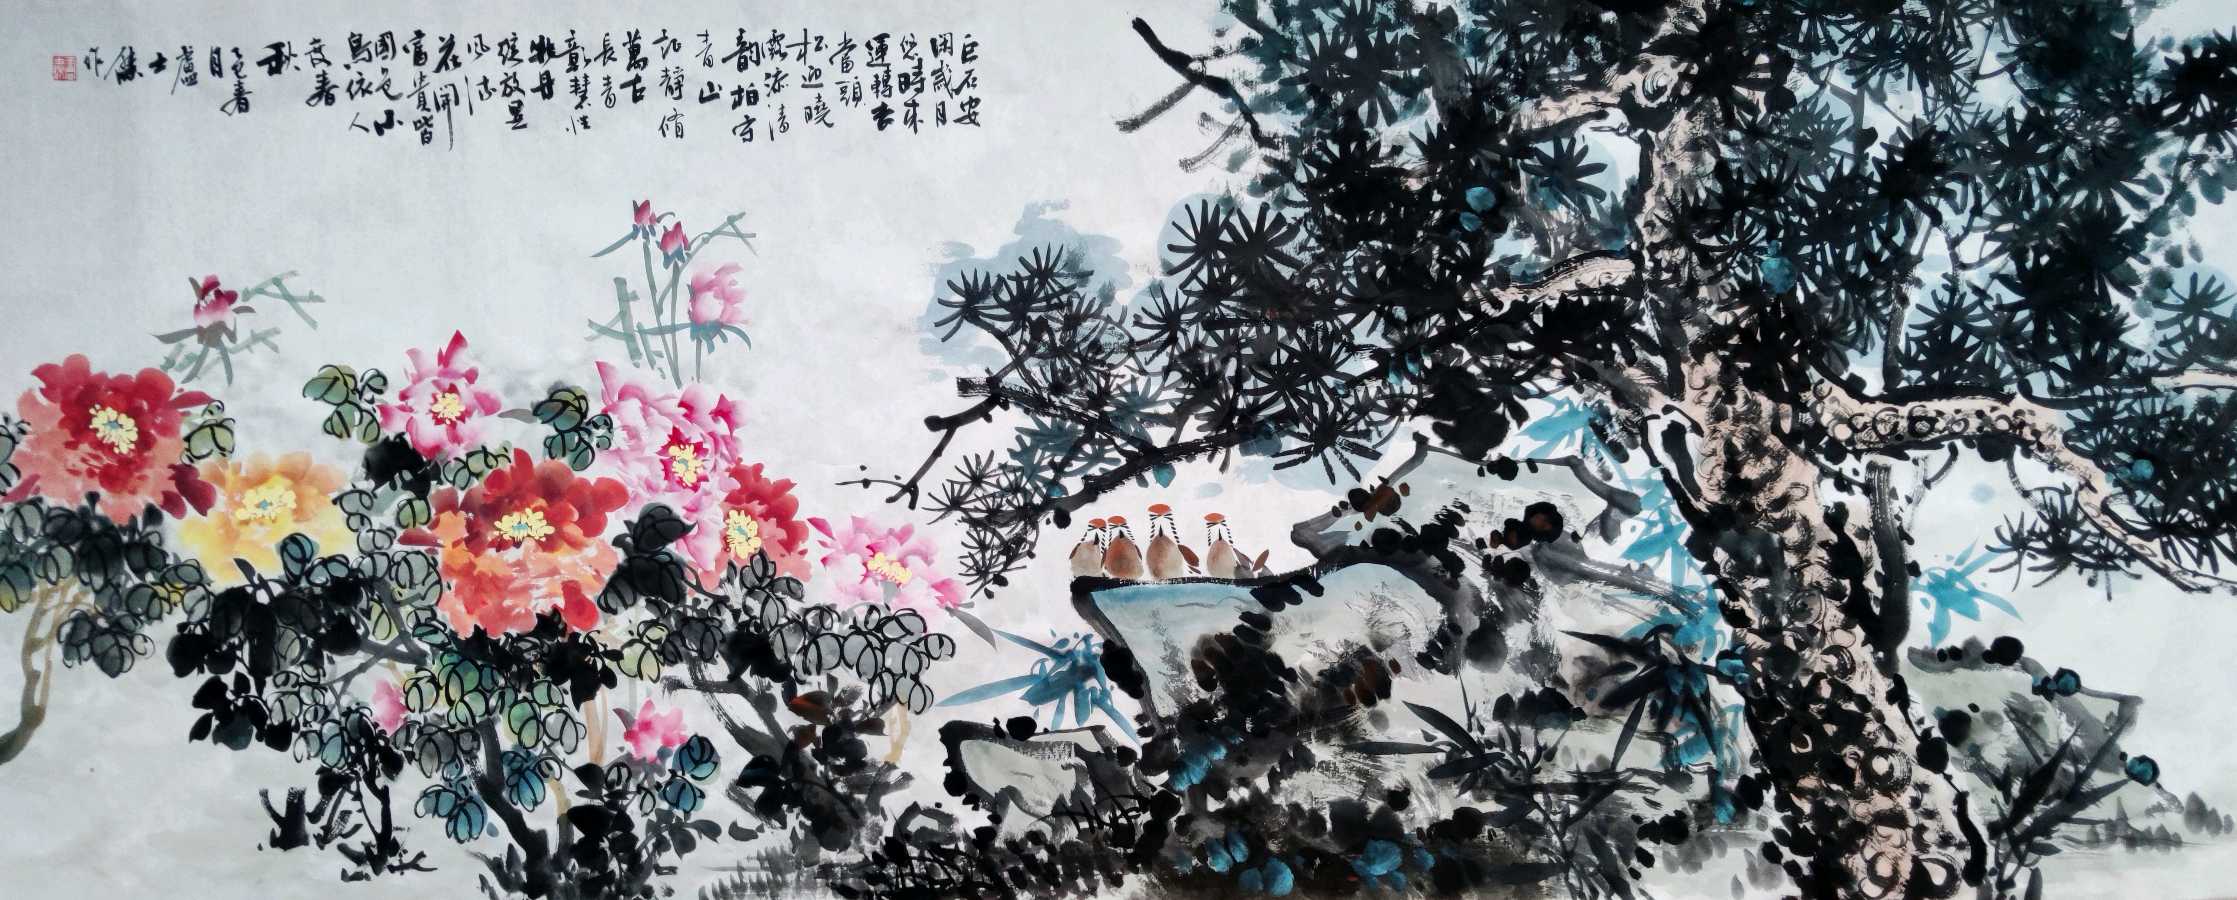 巨石安
閑歲月
悠時來
運轉去
當頭
松迎曉
露添清
韵柏守
青山
記靜脩
萬古
長青
彰慧性
牡丹
綻放呈
风流
花開
富貴皆
國色小
鳥依人
度春
秋
春
月
盧
士
傑
作